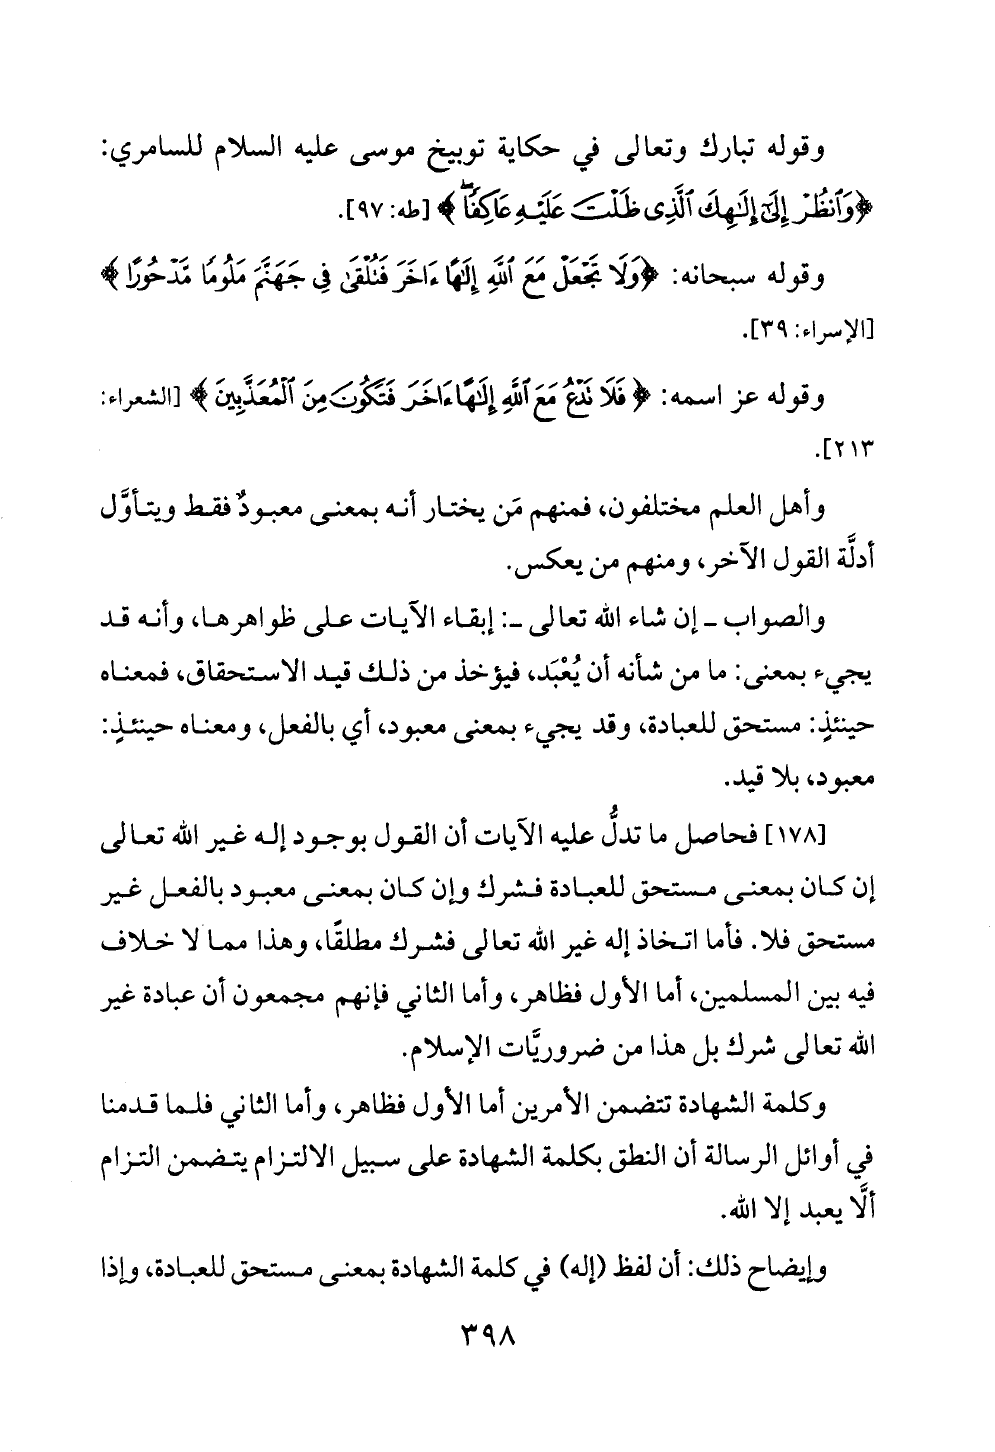 وقوله تبارك وتعالى في حكاية توبيخ موسى عليه السلام للسامري:
﴿وَٱنظُرۡ إِلَىٰٓ إِلَٰهِكَ ٱلَّذِى ظَلۡتَ عَلَيۡهِ عَاكِفًاۖ﴾ [طه: ٩٧].
وقوله سبحانه: ﴿وَلَا تَجۡعَلۡ مَعَ ٱللَّهِ إِلَٰهًا ءَاخَرَ فَتُلۡقَىٰ فِى جَهَنَّمَ مَلُومًا مَّدۡحُورًا﴾
[الإسراء: ٣٩].
وقوله عز اسمه: ﴿فَلَا تَدۡعُ مَعَ ٱللَّهِ إِلَٰهًا ءَاخَرَ فَتَكُونَ مِنَ ٱلۡمُعَذَّبِينَ﴾ [الشعراء:
٢١٣].
وأهل العلم مختلفون، فمنهم مَن يختار أنه بمعنى معبودٌ فقط ويتأوَّل
أدلَّة القول الآخر، ومنهم من يعكس.
والصواب ـ إن شاء الله تعالى ـ: إبقاء الآيات على ظواهرها، وأنه قد
يجيء بمعنى: ما من شأنه أن يُعْبَد، فيؤخذ من ذلك قيد الاستحقاق، فمعناه
حينئذٍ: مستحق للعبادة، وقد يجيء بمعنى معبود، أي بالفعل، ومعناه حينئذٍ:
معبود، بلا قيد.
[١٧٨] فحاصل ما تدلُّ عليه الآيات أن القول بوجود إله غير الله تعالى
إن كان بمعنى مستحق للعبادة فشرك وإن كان بمعنى معبود بالفعل غير
مستحق فلا. فأما اتخاذ إله غير الله تعالى فشرك مطلقًا، وهذا مما لا خلاف
فيه بين المسلمين، أما الأول فظاهر، وأما الثاني فإنهم مجمعون أن عبادة غير
الله تعالى شرك بل هذا من ضروريَّات الإسلام.
وكلمة الشهادة تتضمن الأمرين أما الأول فظاهر، وأما الثاني فلما قدمنا
في أوائل الرسالة أن النطق بكلمة الشهادة على سبيل الالتزام يتضمن التزام
ألَّا يعبد إلا الله.
وإيضاح ذلك: أن لفظ (إله) في كلمة الشهادة بمعنى مستحق للعبادة، وإذا
٣٩٨